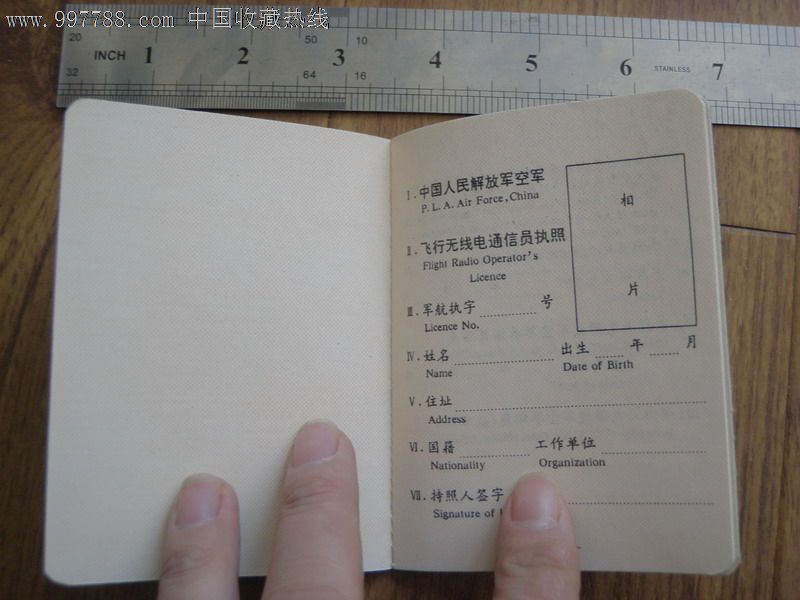 www.997788.com 中国收藏热线
20 50 10
INCH 1 2 3 4 5 6 STAINLESS 7
32 64 16
Ⅰ.中国人民解放军空军
P.L.A. Air Force, China
Ⅱ.飞行无线电通信员执照
Flight Radio Operator's
Licence
相
片
Ⅲ.军航执字 号
Licence No.
Ⅳ.姓名 出生 年 月
Name Date of Birth
Ⅴ.住址
Address
Ⅵ.国籍 工作单位
Nationality Organization
Ⅶ.持照人签字
Signature of